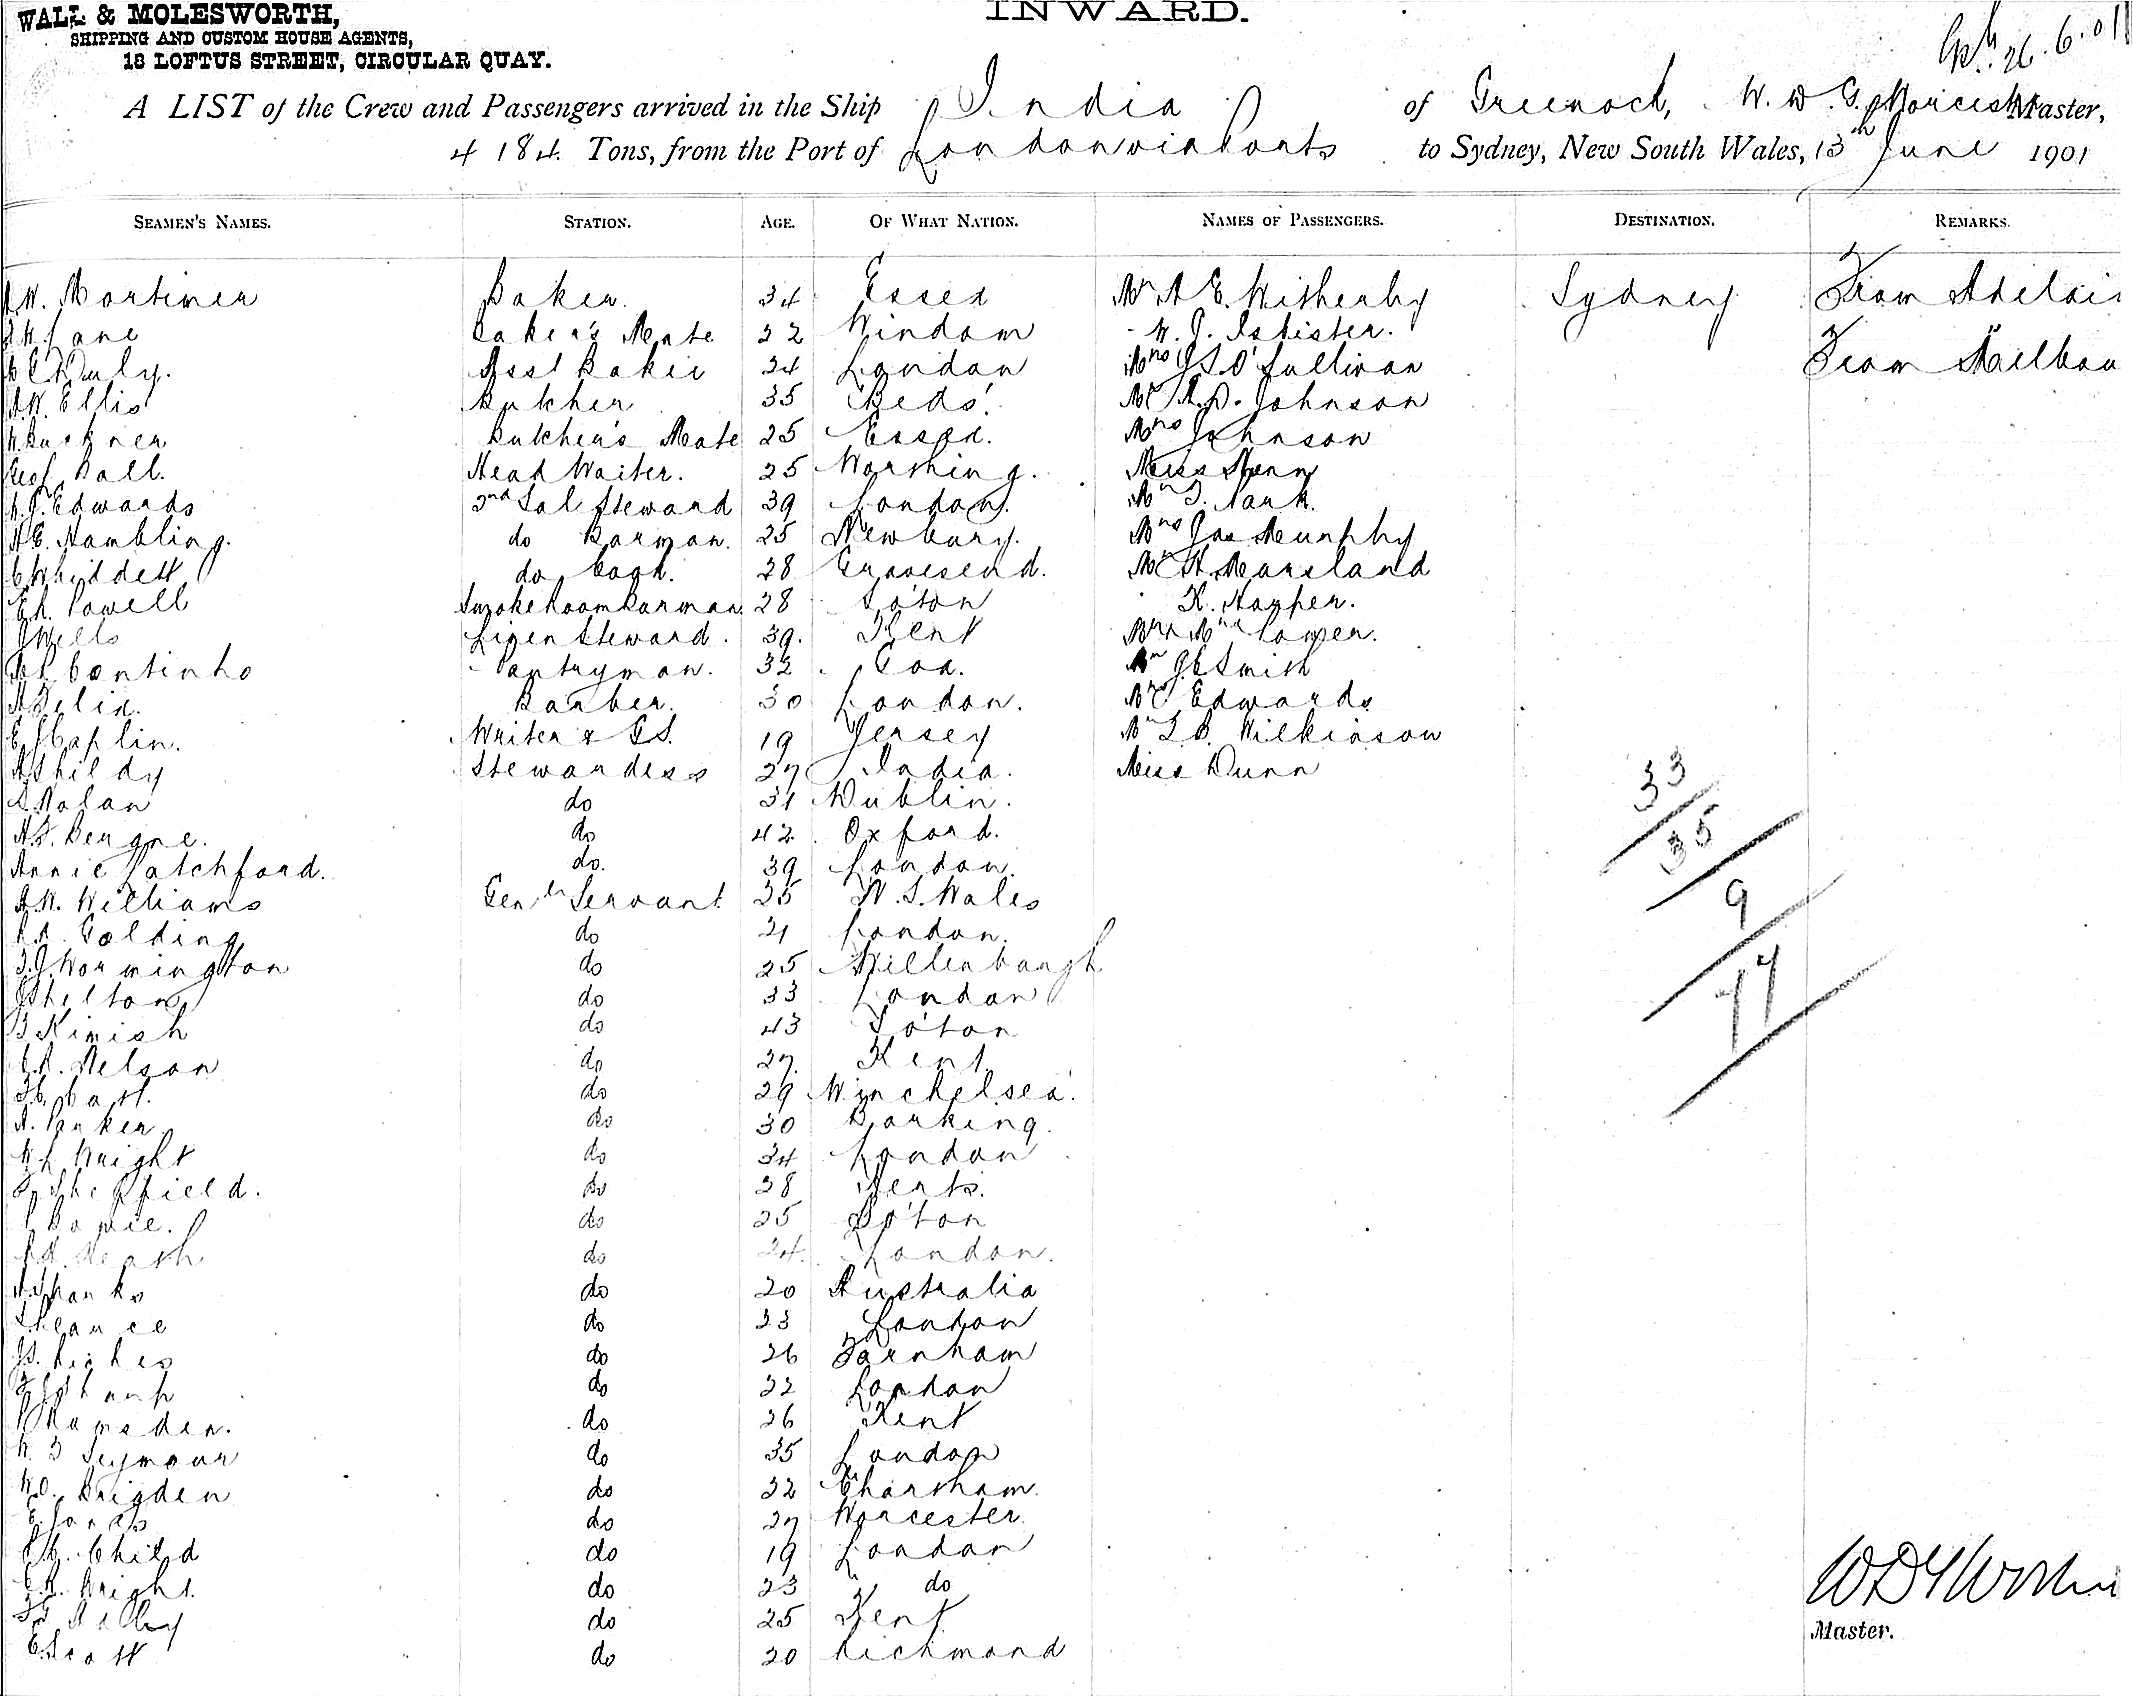 WALL & MOLESWORTH,
SHIPPING AND CUSTOM HOUSE AGENTS,
18 LOFTUS STREET, CIRCULAR QUAY.
INWARD.
26.6.01
A LIST of the Crew and Passengers arrived in the Ship India of Greenock, W. D. G. Worcester Master,
4184 Tons, from the Port of London via Ports to Sydney, New South Wales, 13th June 1901
SEAMEN'S NAMES. STATION. AGE. OF WHAT NATION. NAMES OF PASSENGERS. DESTINATION. REMARKS.
W. Mortimer Baker. 34 Essex Mr A E. Witherby Sydney From Adelai
Lane Baker's Mate 22 Windom W. J. Isbister.
Duly. Asst Baker 24 London Mrs J S O'Sullivan From Melbou
A W. Ellis Butcher 35 Beds. Mr A. D. Johnson
Buckner Butcher's Mate 25 Essex. Mrs Johnson
Geo Ball. Head Waiter. 25 Worthing. Miss
Edwards 2nd Sal Steward 39 London. Mr T. Park.
H E. Hambling. do Barman. 25 Newbury. Mrs Jas Murphy
C Whiddett do Cook. 28 Gravesend. Mr H. Marsland
E. A. Powell Smoke Room Barman 28 So'ton K. Harper.
J Wells Linen Steward. 39. Kent Mr & Mrs Cowper.
Coutinho Pantryman. 32 Goa. Mr J E Smith
A Felix. Barber. 30 London. Mr Edwards
E J Caplin. Writer & GS. 19 Jersey Mr L B. Wilkinson
A Shildy Stewardess 27 India. Miss Dunn
Nolan do 31 Dublin.
A. F. Bengne. do 42 Oxford.
Annie Patchford. do. 39 London.
A W. Williams Genl Servant 25 N. S. Wales
Golding do 21 London.
T. J. Wormington do 25 Willenbough
J Shelton do 33 London
Kimish do 43 So'ton
C. A. Nelson do 27. Kent
do 29 Winchelsea.
A. Parker do 30 Barking.
W L Wright do 34 London
Sheffield. do 28 Herts.
Bowie. do 25 So'ton
Heath do 24. London.
A Shanks do 20 Australia
Pearce do 23 London
do 26 Farnham
do 22 London
Ramsden. do 26 Kent
W. J Seymour do 35 London
W. D. Brigden do 22 Chartham.
E. Jones do 27 Worcester
Child do 19 London
Bright. do 23 do
do 25 Kent
E. Scott do 20 Richmond
33
35
9
77
Master.